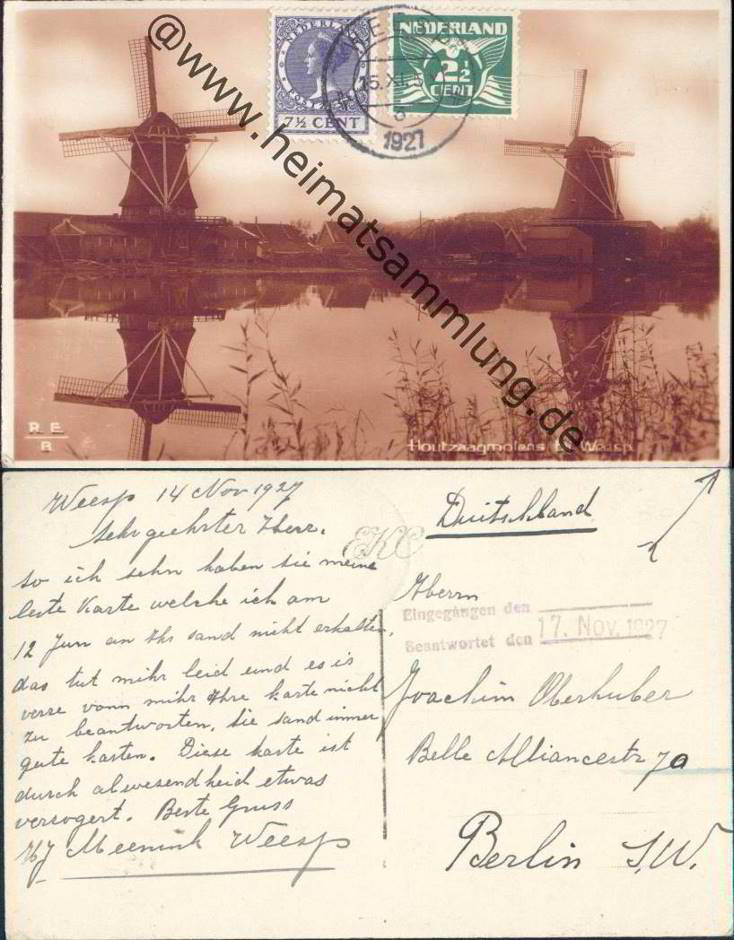 @www.heimatsammlung.de
NEDERLAND
7½ CENT
NEDERLAND
2½
CENT
WEESP
15.XI
1927
R E
B
Houtzaagmolens Weesp
Weesp 14 Nov 1927
Sehr geehrter Herr.
so ich sehn haben sie meine
leste Karte welche ich am
12 Jun an Ihr sand nicht erhalten,
das tut mihr leid und es is
verre vonn mihr Ihre karte nicht
zu beantworten, sie sand immer
gute karten. Diese karte ist
durch alwesendheid etwas
versogert. Beste Gruss
HJ Meenink Weesp
EKC
Duitschland
Herrn
Eingegangen den
Beantwortet den 17. Nov. 1927
Joachim Oberhuber
Belle Alliancestr 70
Berlin S.W.